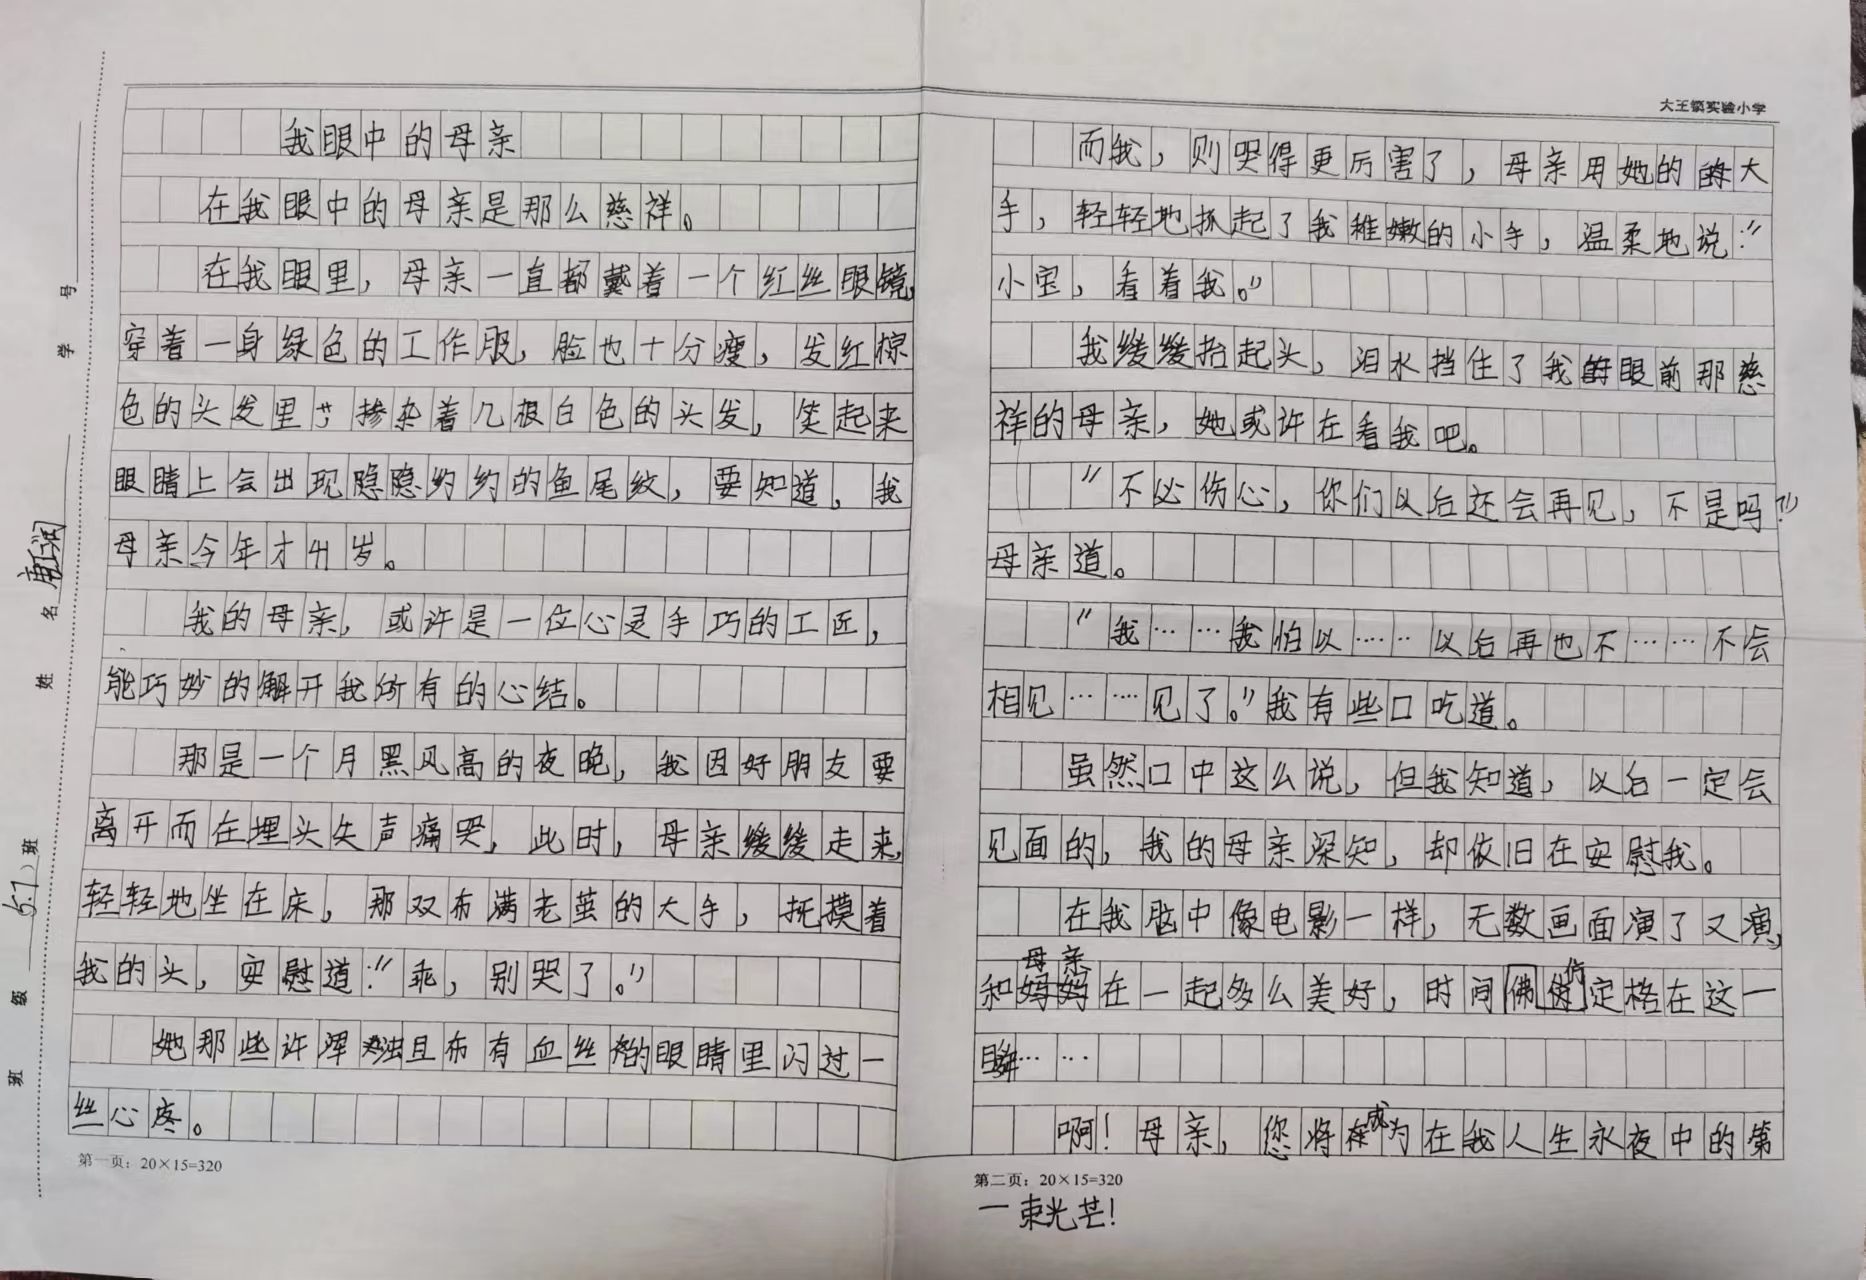 大王镇实验小学
学号
姓名
班级 5.7）班
我眼中的母亲
在我眼中的母亲是那么慈祥。
在我眼里，母亲一直都戴着一个红丝眼镜，
穿着一身绿色的工作服，脸也十分瘦，发红棕
色的头发里掺杂着几根白色的头发，笑起来
眼睛上会出现隐隐约约的鱼尾纹，要知道，我
母亲今年才41岁。
我的母亲，或许是一位心灵手巧的工匠，
能巧妙的解开我所有的心结。
那是一个月黑风高的夜晚，我因好朋友要
离开而在埋头失声痛哭，此时，母亲缓缓走来，
轻轻地坐在床，那双布满老茧的大手，抚摸着
我的头，安慰道：“乖，别哭了。”
她那些许浑浊且布有血丝的眼睛里闪过一
丝心疼。
第一页：20×15=320
而我，则哭得更厉害了，母亲用她的大
手，轻轻地抓起了我稚嫩的小手，温柔地说：“
小宝，看着我。”
我缓缓抬起头，泪水挡住了我眼前那慈
祥的母亲，她或许在看我吧。
“不必伤心，你们以后还会再见，不是吗？”
母亲道。
“我……我怕以……以后再也不……不会
相见……见了。”我有些口吃道。
虽然口中这么说，但我知道，以后一定会
见面的，我的母亲深知，却依旧在安慰我。
在我脑中像电影一样，无数画面演了又演，
和母亲在一起多么美好，时间仿佛定格在这一
瞬……
啊！母亲，您将成为在我人生永夜中的第
第二页：20×15=320
一束光芒！